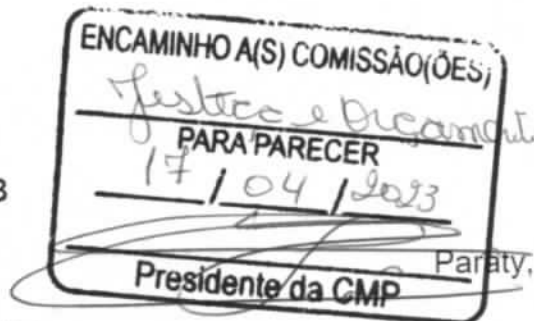 ENCAMINHO A(S) COMISSÃO(ÕES)
Justiça e Orçamento
PARA PARECER
17 / 04 / 2023
3
Paraty,
Presidente da CMP